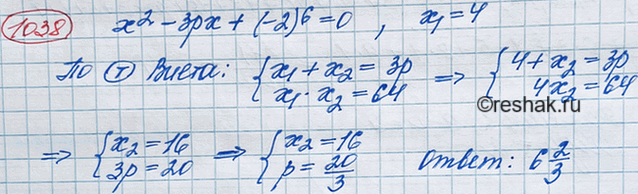 1038 x² - 3px + (-2)⁶ = 0 , x₁ = 4
По Т Виета: { x₁ + x₂ = 3p ; x₁ · x₂ = 64 ⇒ { 4 + x₂ = 3p ; 4x₂ = 64
©reshak.ru
⇒ { x₂ = 16 ; 3p = 20 ⇒ { x₂ = 16 ; p = 20/3 Ответ: 6 2/3